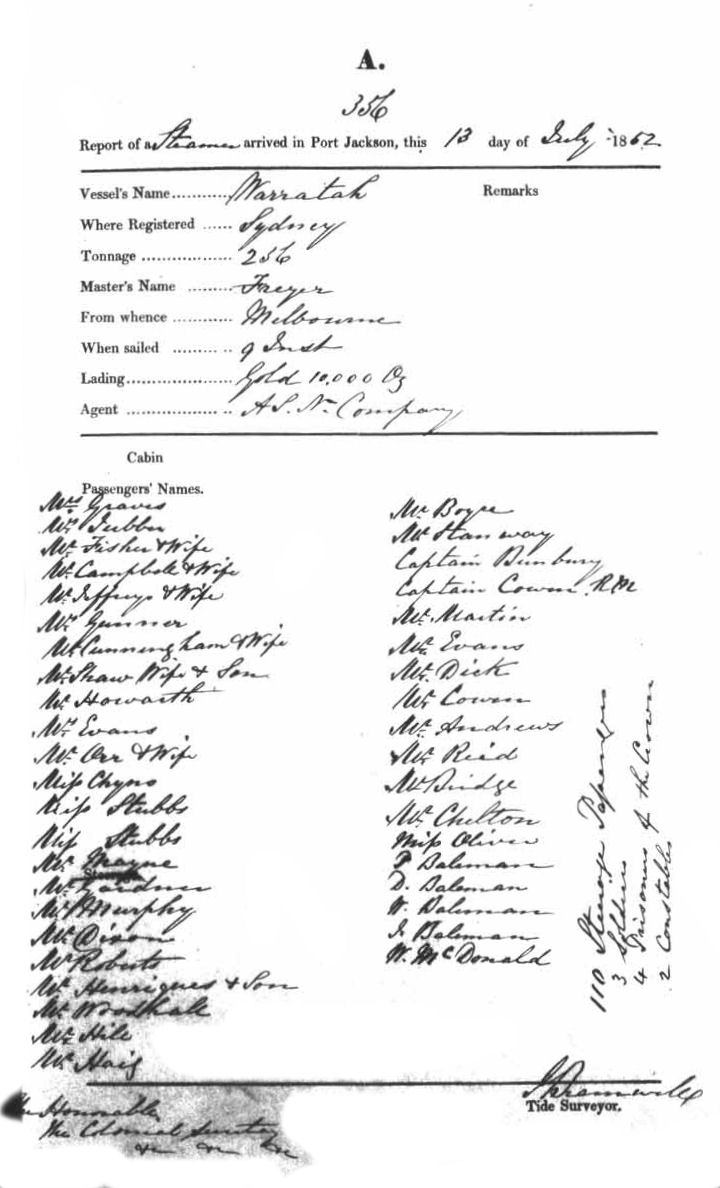 A.
356
Report of a Steamer arrived in Port Jackson, this 13 day of July 1852
Vessel's Name........... Warratah
Remarks
Where Registered ...... Sydney
Tonnage .................. 256
Master's Name ......... Freyer
From whence ............ Melbourne
When sailed ............ 9 Inst
Lading..................... Gold 10,000 Oz
Agent ..................... A S. N. Company
Cabin
Passengers' Names.
Mrs Graves
Mr Fisher & Wife
Mr Campbell & Wife
Mr Jeffreys & Wife
Mr Gunner
Mr Cunningham & Wife
Mr Shaw Wife & Son
Mr Howarth
Mrs Evans
Mr Orr & Wife
Miss Chyns
Miss Stubbs
Miss Stubbs
Mr Mayne
Mr Gardner
Mr Murphy
Mr Dixon
Mr Roberts
Mr Henriques & Son
Mr Woodhall
Mr Hill
Mr Haig
Mr Boyce
Mr Stanway
Captain Bunbury
Captain Cowen R.M
Mr Martin
Mr Evans
Mr Dick
Mr Cowen
Mr Andrews
Mr Reid
Mr Bridge
Mr Chelton
Miss Oliver
F Baleman
D. Baleman
W. Baleman
J. Baleman
W. McDonald
110 Steerage Passengers
3 Soldiers
4 Prisoners of the Crown
2 Constables
Tide Surveyor.
The Honorable
The Colonial Secretary
&c &c &c